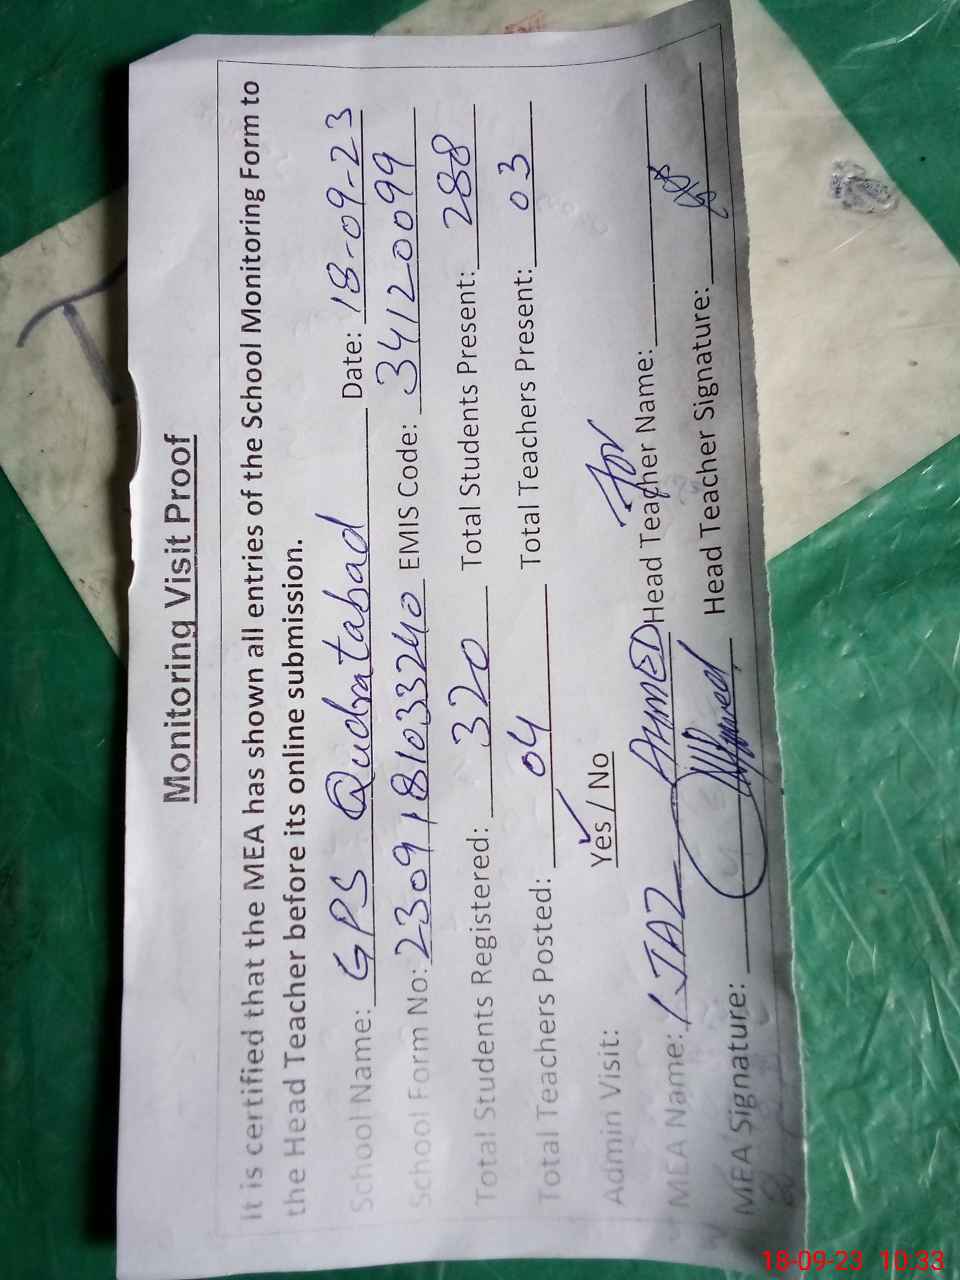 Monitoring Visit Proof
It is certified that the MEA has shown all entries of the School Monitoring Form to
the Head Teacher before its online submission.
School Name: GPS Qudratabad Date: 18-09-23
School Form No: 2309181033240 EMIS Code: 34120099
Total Students Registered: 320 Total Students Present: 288
Total Teachers Posted: 04 Total Teachers Present: 03
Admin Visit: Yes / No For
MEA Name: IJAZ AHMED Head Teacher Name:
MEA Signature: Head Teacher Signature:
18-09-23 10:33